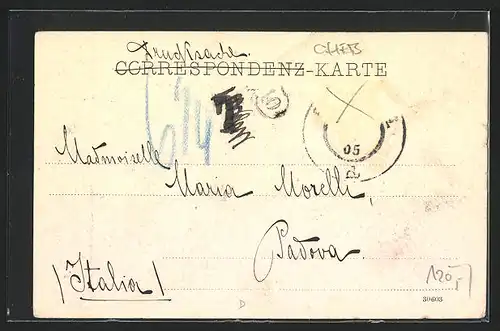 Drucksache.
CHEB
CORRESPONDENZ-KARTE
T
05
Mademoiselle
Maria Morelli,
Padova
/Italia/
120,-/
D
39603